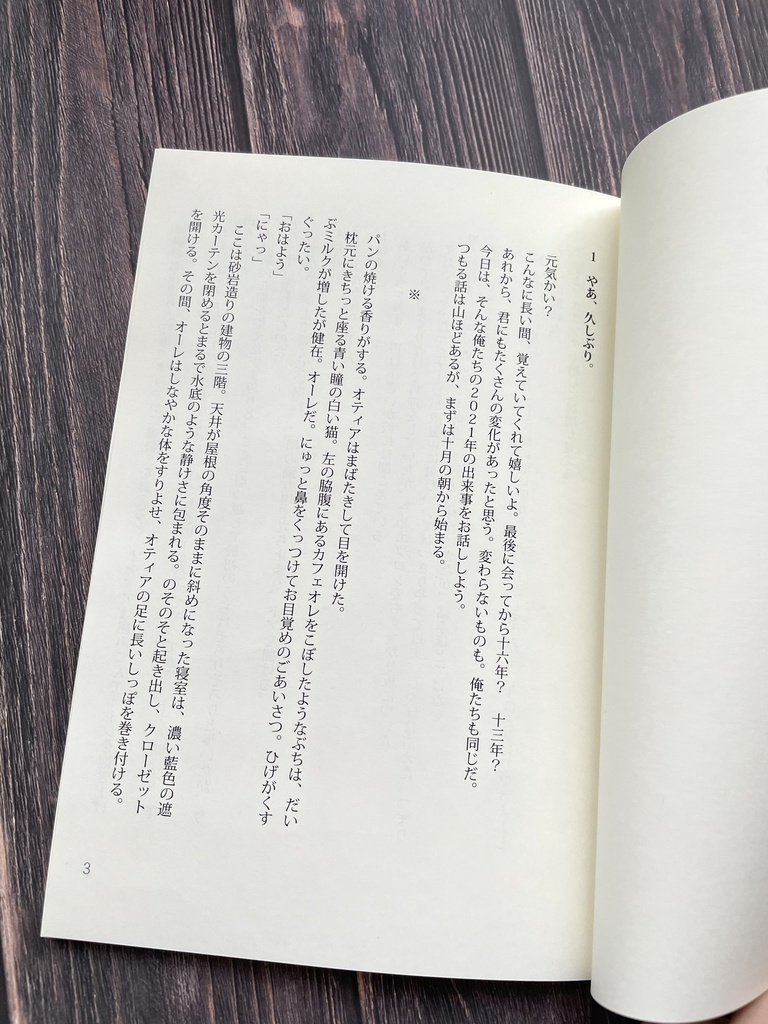 1 やあ、久しぶり。
元気かい?
こんなに長い間、覚えていてくれて嬉しいよ。最後に会ってから十六年? 十三年?
あれから、君にもたくさんの変化があったと思う。変わらないものも。俺たちも同じだ。
今日は、そんな俺たちの2021年の出来事をお話ししよう。
つもる話は山ほどあるが、まずは十月の朝から始まる。
※
パンの焼ける香りがする。オティアはまばたきして目を開けた。
枕元にきちっと座る青い瞳の白い猫。左の脇腹にあるカフェオレをこぼしたようなぶちは、だい
ぶミルクが増したが健在。オーレだ。にゅっと鼻をくっつけてお目覚めのごあいさつ。ひげがくす
ぐったい。
「おはよう」
「にゃっ」
ここは砂岩造りの建物の三階。天井が屋根の角度そのままに斜めになった寝室は、濃い藍色の遮
光カーテンを閉めるとまるで水底のような静けさに包まれる。のそのそと起き出し、クローゼット
を開ける。その間、オーレはしなやかな体をすりよせ、オティアの足に長いしっぽを巻き付ける。
3